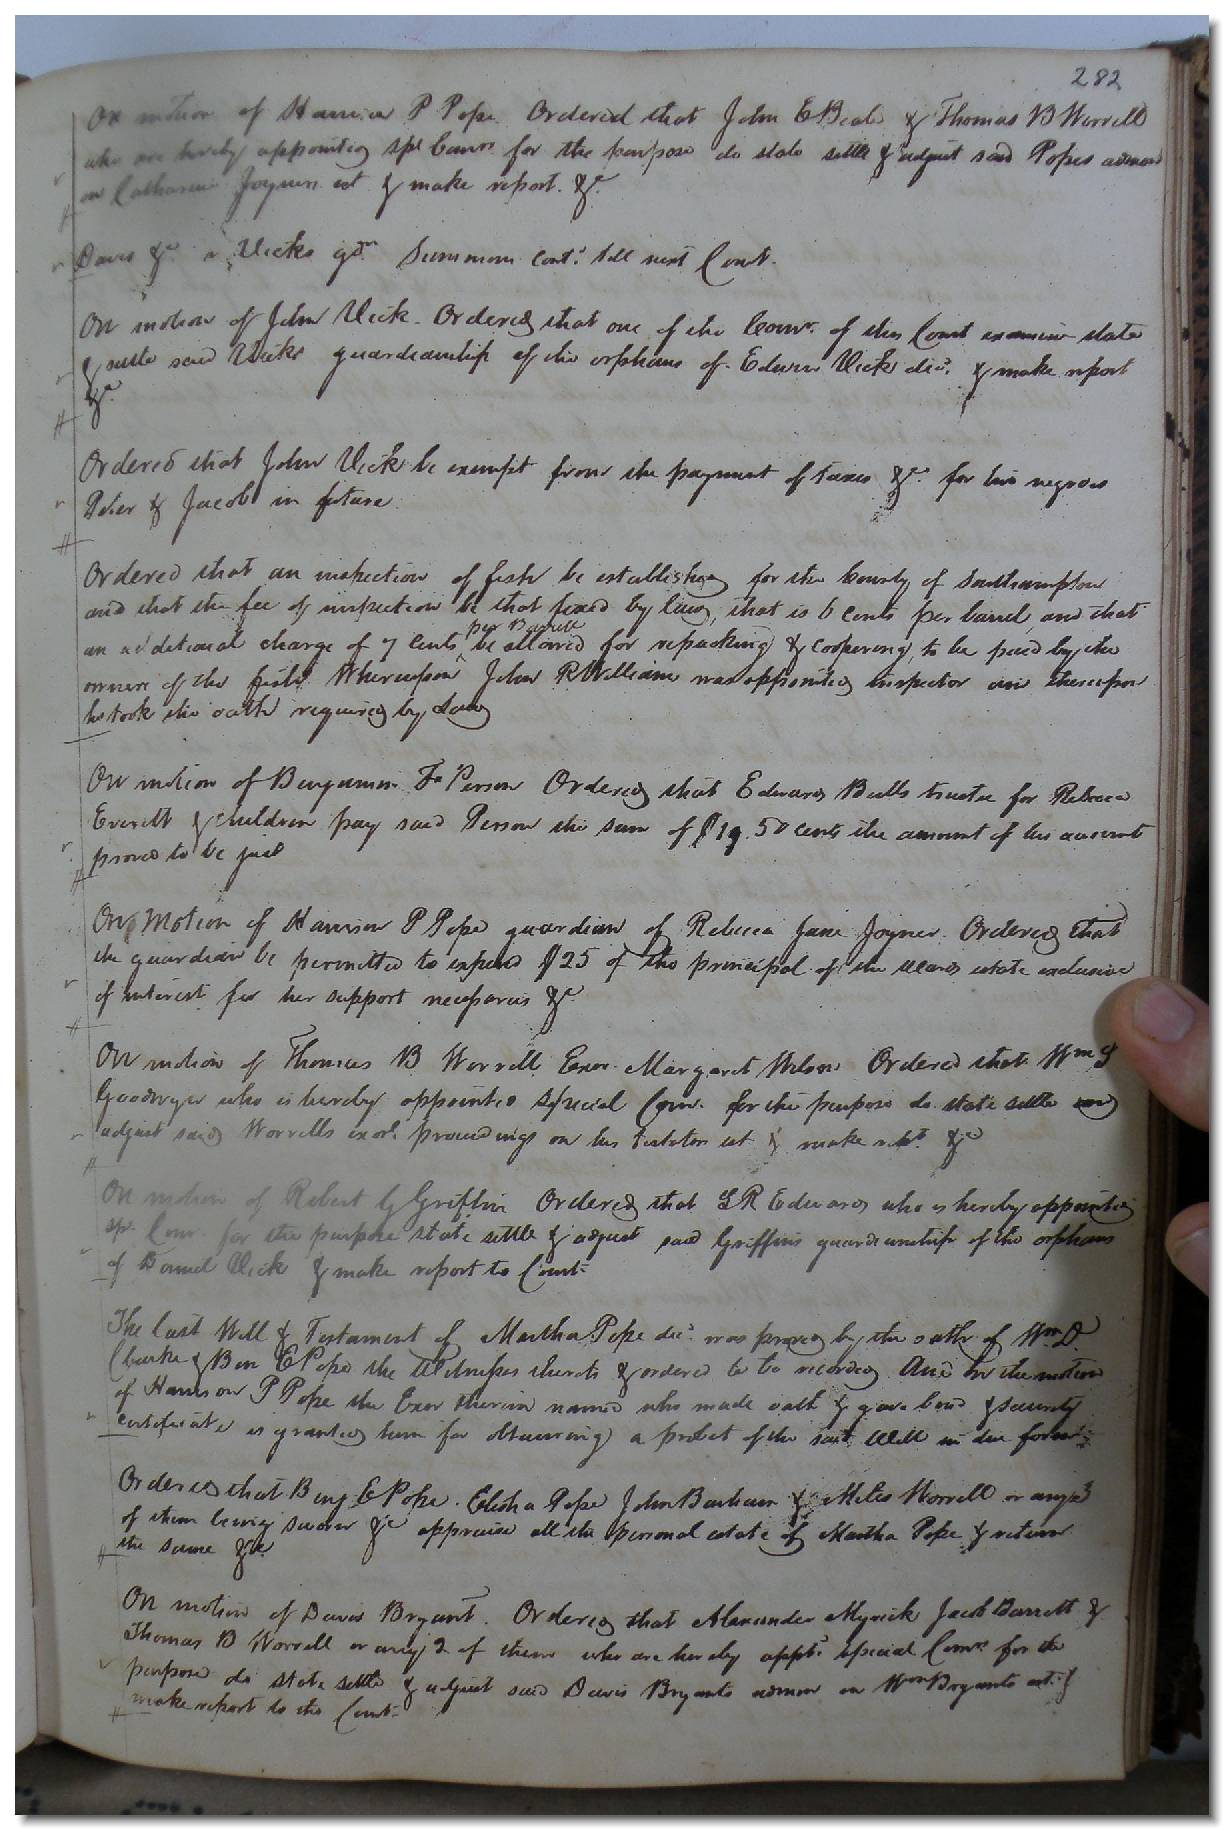 282
On motion of Harrison P Pope Ordered that John E Beale & Thomas B Worrell
who are hereby appointed spl Comrs for the purpose do state settle & adjust said Popes admon
on Catharine Joyners est & make report &c
Davis &c v Vicks gdn Summons cont.d till next Court.
On motion of John Vick. Ordered that one of the Comrs. of this Court examine state
& settle said Vicks guardianship of the orphans of Edwin Vick dec. & make report
&c
Ordered that John Vick be exempt from the payment of taxes &c for two negroes
Peter & Jacob in future
Ordered that an inspection of fish be established for the County of Southampton
and that the fee of inspection be that fixed by law, that is 6 cents per barrel, and that
per Barrell
an additional charge of 7 cents be allowed for repacking & coopering, to be paid by the
owners of the fish Whereupon John R William was appointed inspector and thereupon
he took the oath required by Law
On motion of Benjamin F Person Ordered that Edward Butts trustee for Rebecca
Everett & children pay said Person the sum of $19.50 cents the amount of his account
proved to be just
On Motion of Harrison P Pope guardian of Rebecca Jane Joyner Ordered that
the guardian be permitted to expend $25 of the principal of the Wards estate exclusive
of interest for her support necessaries &c
On motion of Thomas B Worrell Exor. Margaret Wilson Ordered that Wm G
Goodwyn who is hereby appointed Special Comr. for the purpose do state settle and
adjust said Worrells exorl. proceedings on his testators est & make rept &c
On motion of Robert G Griffin Ordered that G R Edwards who is hereby appointed
sp. Comr. for the purpose state settle & adjust said Griffins guardianship of the orphans
of Daniel Vick & make report to Court
The last Will & Testament of Martha Pope dec. was proved by the oath of Wm D
Clarke & Ben E Pope the Witnesses thereto & ordered to be recorded And on the motion
of Harrison P Pope the Exor therein named who made oath & gave bond & security
certificate is granted him for obtaining a probet of the said Will in due form
Ordered that Benj E Pope. Elisha Pope John Barham & Miles Worrell or any 3
of them being sworn &c appraise all the personal estate of Martha Pope & return
the same &c
On motion of Davis Bryant. Ordered that Alexander Myrick Jacob Barrett &
Thomas B Worrell or any 2 of them who are hereby appt.d special Comrs for the
purpose do state settle & adjust said Davis Bryants admon on Wm Bryants est. &
make report to the Court